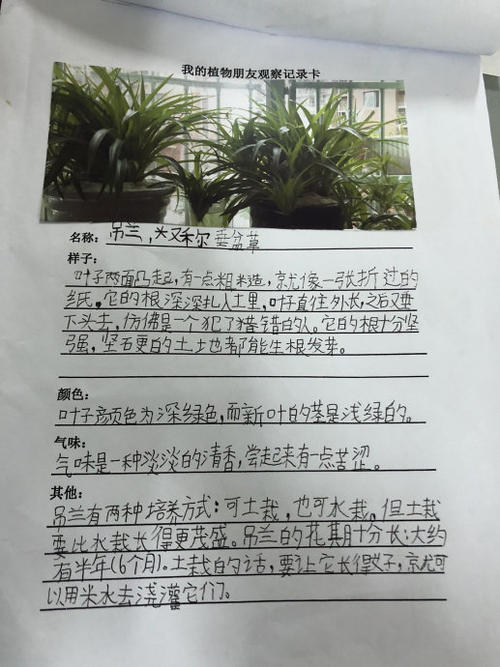 我的植物朋友观察记录卡
名称: 吊兰,又称尔垂盆草
样子:
叶子两面凸起,有一点粗糙,就像一张折过的
纸。它的根深深扎入土里,叶子直往外长,之后又垂
下头去,仿佛是一个犯了错的人。它的根十分坚
强,坚石更的土地也都能生根发芽。
颜色:
叶子颜色为深绿色,而新叶的茎是浅绿的。
气味:
气味是一种淡淡的清香,尝起来有一点苦涩。
其他:
吊兰有两种培养方式:可土栽,也可水栽。但土栽
要比水栽长得更茂盛。吊兰的花期十分长:大约
有半年(6个月)。土栽的话,要让它长得好,就可
以用米水去浇灌它们。